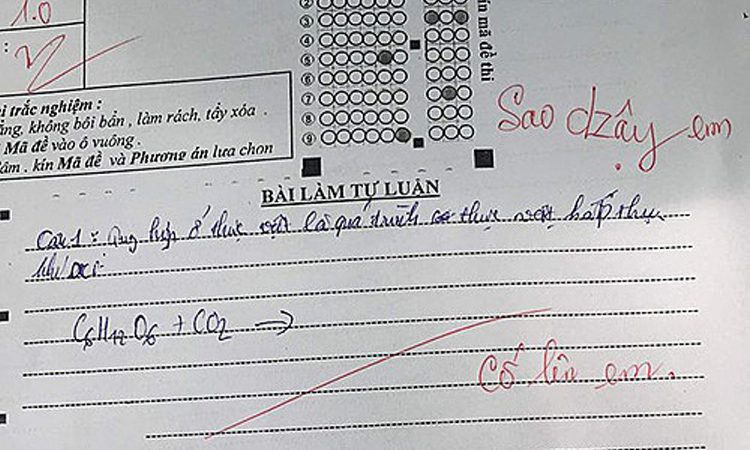 1.0
:
i trắc nghiệm :
không bôi bẩn , làm rách, tẩy xóa .
Mã đề vào ô vuông .
kín Mã đề và Phương án lưa chon
3
4
5
6
7
8
9
mã đề thi
Sao dzậy em
BÀI LÀM TỰ LUẬN
Câu 1 : hợp ở thực vật là quá trình thực vật hấp thụ
khí oxi
C6H12O6 + CO2 →
Cố lên em.